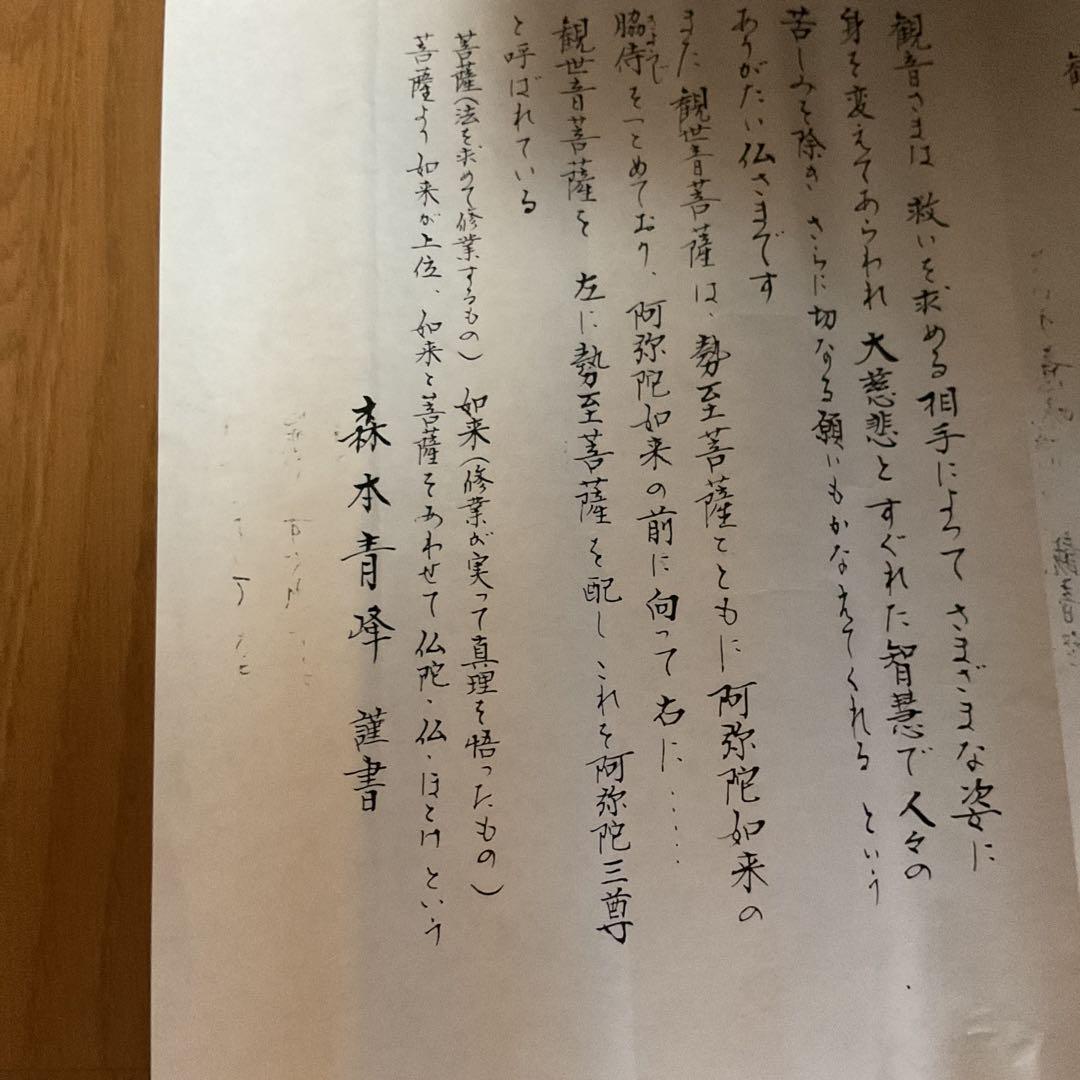 観音さまは 救いを求める相手によって さまざまな姿に
身を変えてあらわれ 大慈悲とすぐれた智慧で人々の
苦しみを除き さらに切なる願いもかなえてくれる という
ありがたい仏さまです
また 観世音菩薩は、勢至菩薩とともに 阿弥陀如来の
脇侍をつとめており、阿弥陀如来の前に向って右に……
観世音菩薩を 左に勢至菩薩を配し これを阿弥陀三尊
と呼ばれている
菩薩(法を求めて修業するもの) 如来(修業が実って真理を悟ったもの)
菩薩より如来が上位、如来と菩薩をあわせて仏陀・仏・ほとけという
森本青峰 謹書